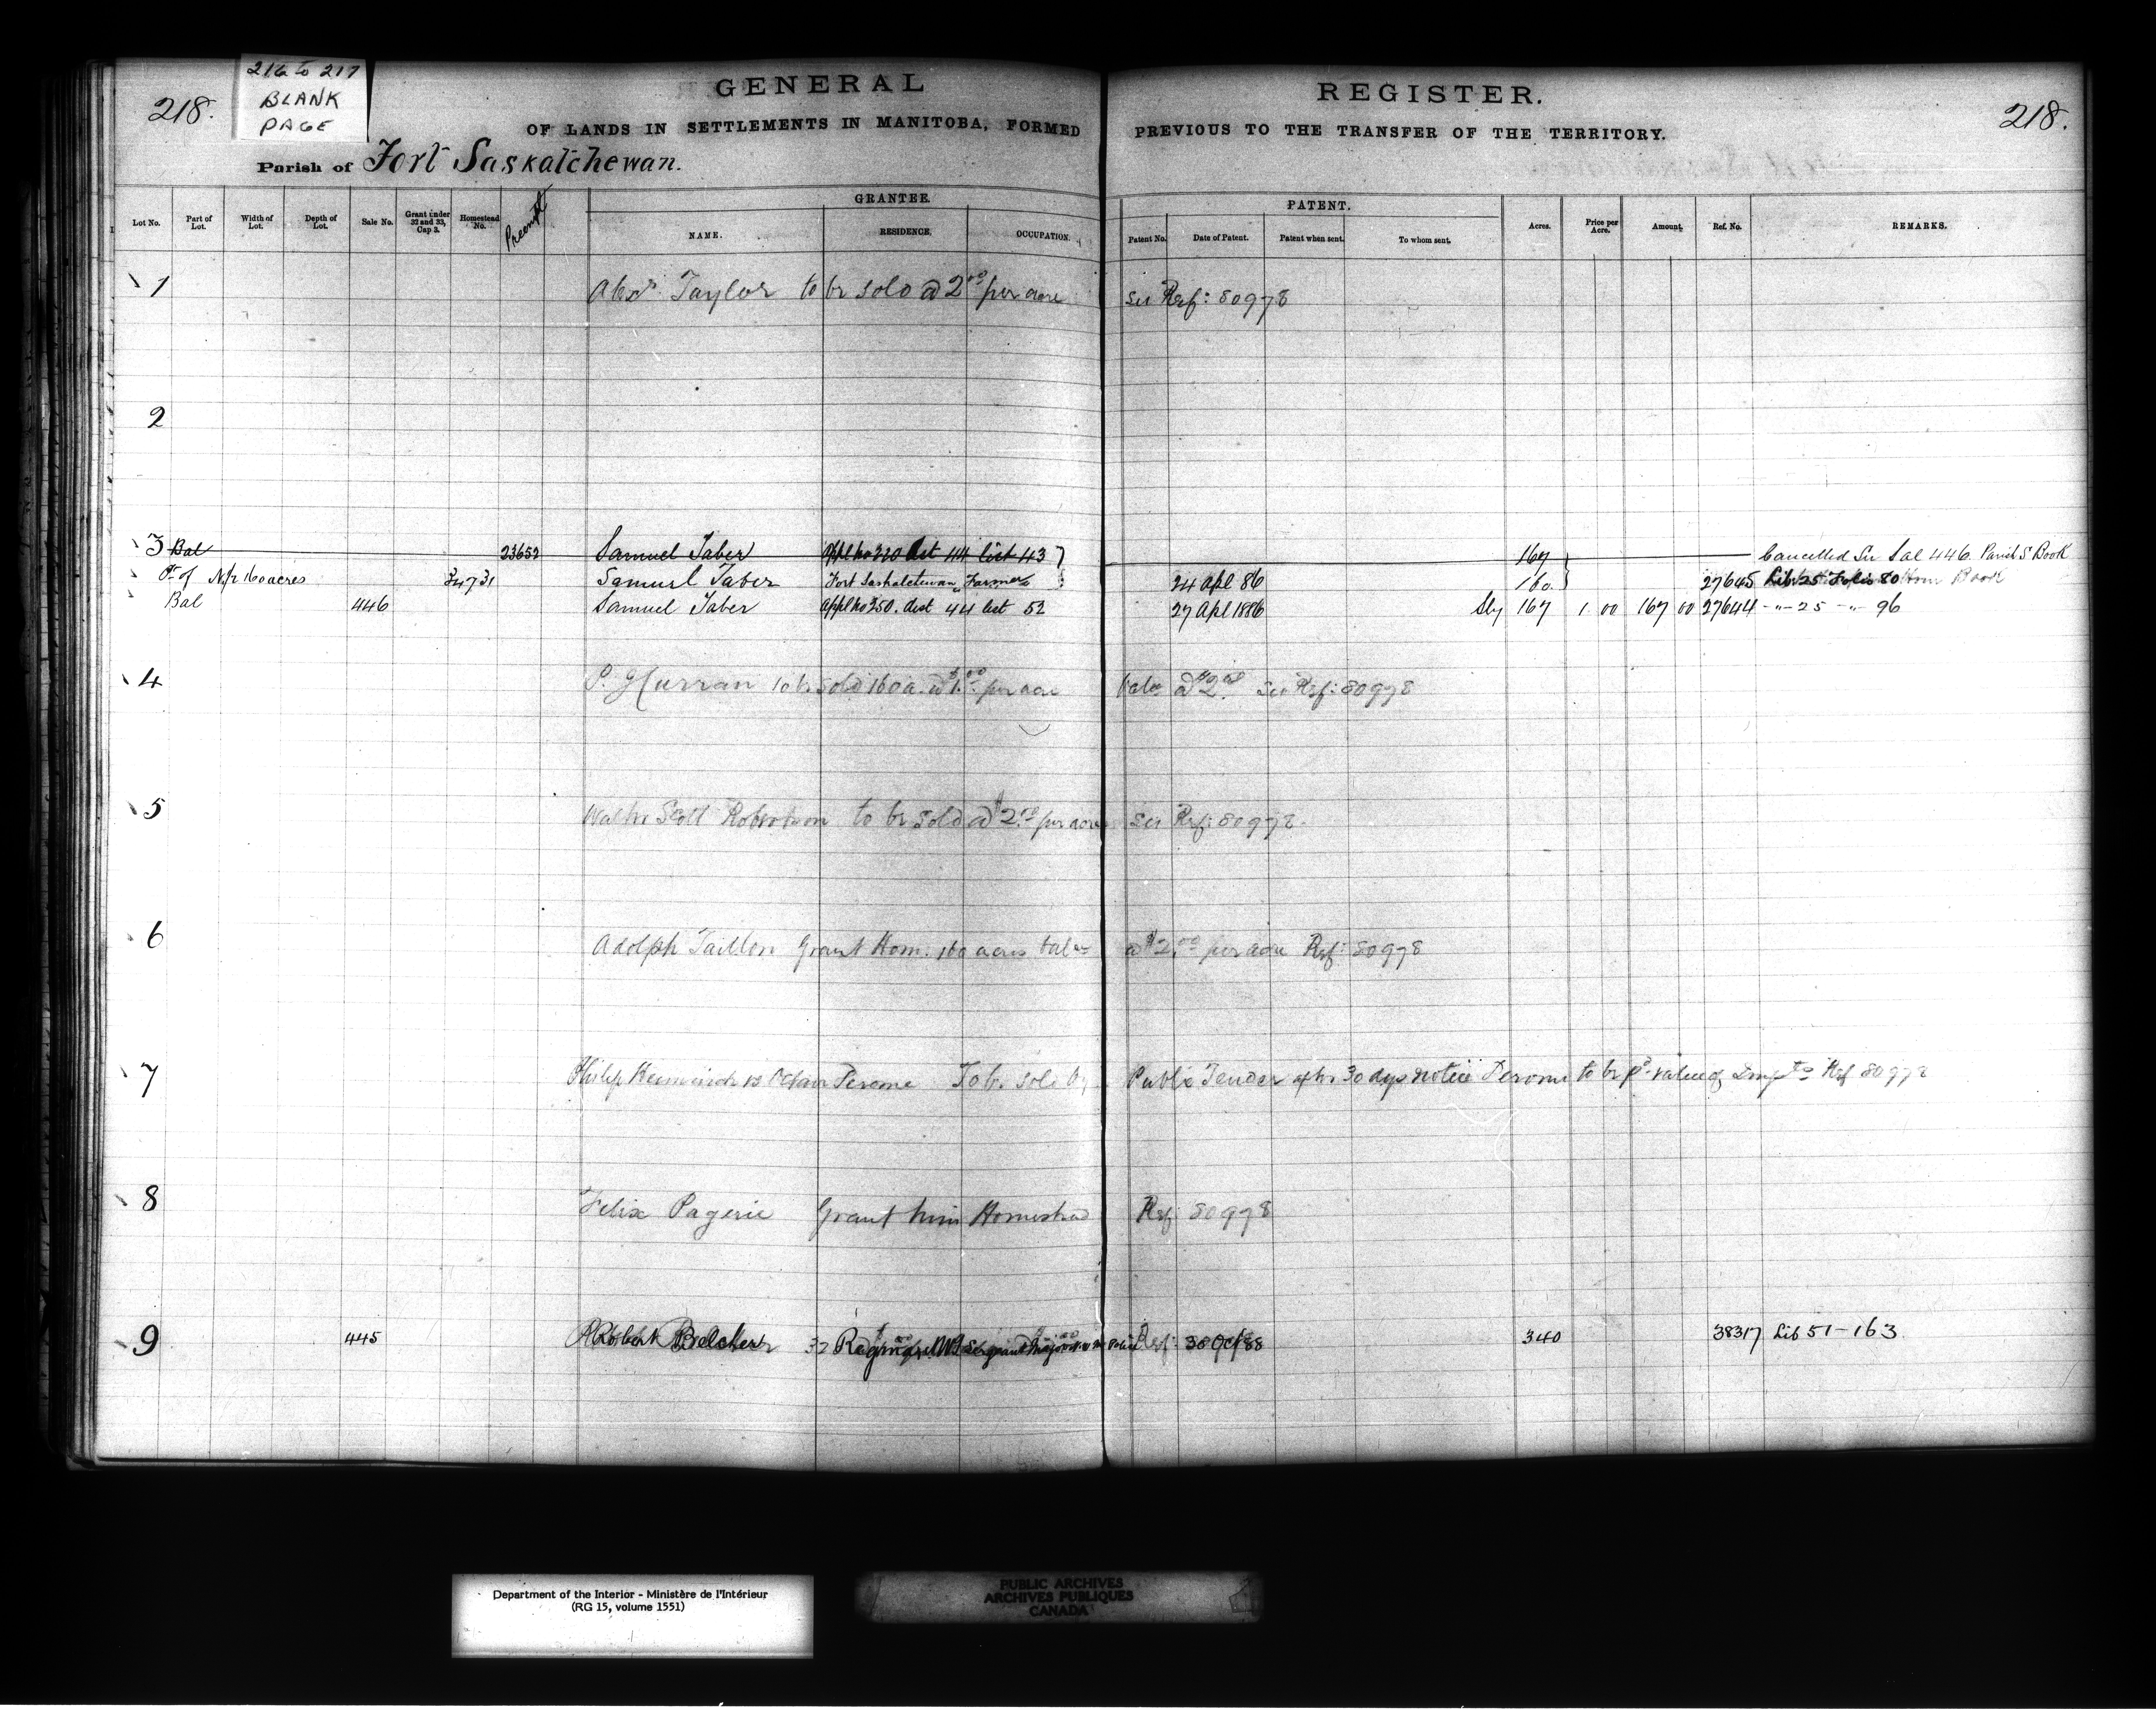 216 to 217
BLANK
PAGE
218.
GENERAL REGISTER.
218.
OF LANDS IN SETTLEMENTS IN MANITOBA, FORMED PREVIOUS TO THE TRANSFER OF THE TERRITORY.
Parish of Fort Saskatchewan.
GRANTEE. PATENT.
Lot No. Part of Lot. Width of Lot. Depth of Lot. Sale No. Grant under 32 and 33, Cap 3. Homestead No. Preempt NAME. RESIDENCE. OCCUPATION. Patent No. Date of Patent. Patent when sent. To whom sent. Acres. Price per Acre. Amount. Ref. No. REMARKS.
1 Alexr. Taylor to be sold @ 2.00 per acre see Ref: 80978
2
3 Bal 23652 Samuel Taber Appl no 320 dist 44 list 43 167 Cancelled See Sal 446 Parish S Book
Pt of N/r 160 acres 34731 Samuel Taber Fort Saskatchewan Farmer 24 Apl 86 160 27645 Lib 25 Folio 80 Hom Book
Bal 446 Samuel Taber Appl no 350. dist 44 list 52 27 Apl 1886 Sly 167 1 00 167 00 27644 -"- 25 -"- 96
4 P. Curran to be sold 160 a. @ $1.00 per acre balce @ $2.00 See Ref: 80978
5 Walter Scott Robertson to be sold @ $2.00 per acre see Ref: 80978.
6 Adolph Taillon Grant Hom. 160 acres balce @ $2.00 per acre Ref: 80978
7 Philip vs Octave Perome To be sold by Public Tender after 30 dys notice Perome to be pd. value of Impts Ref 80978
8 Felix Pagerie Grant him Homestead Ref: 80978
9 445 Robert Belcher Regina 30 Oct 88 340 38317 Lib 51-163
Department of the Interior - Ministère de l'Intérieur
(RG 15, volume 1551)
PUBLIC ARCHIVES
ARCHIVES PUBLIQUES
CANADA